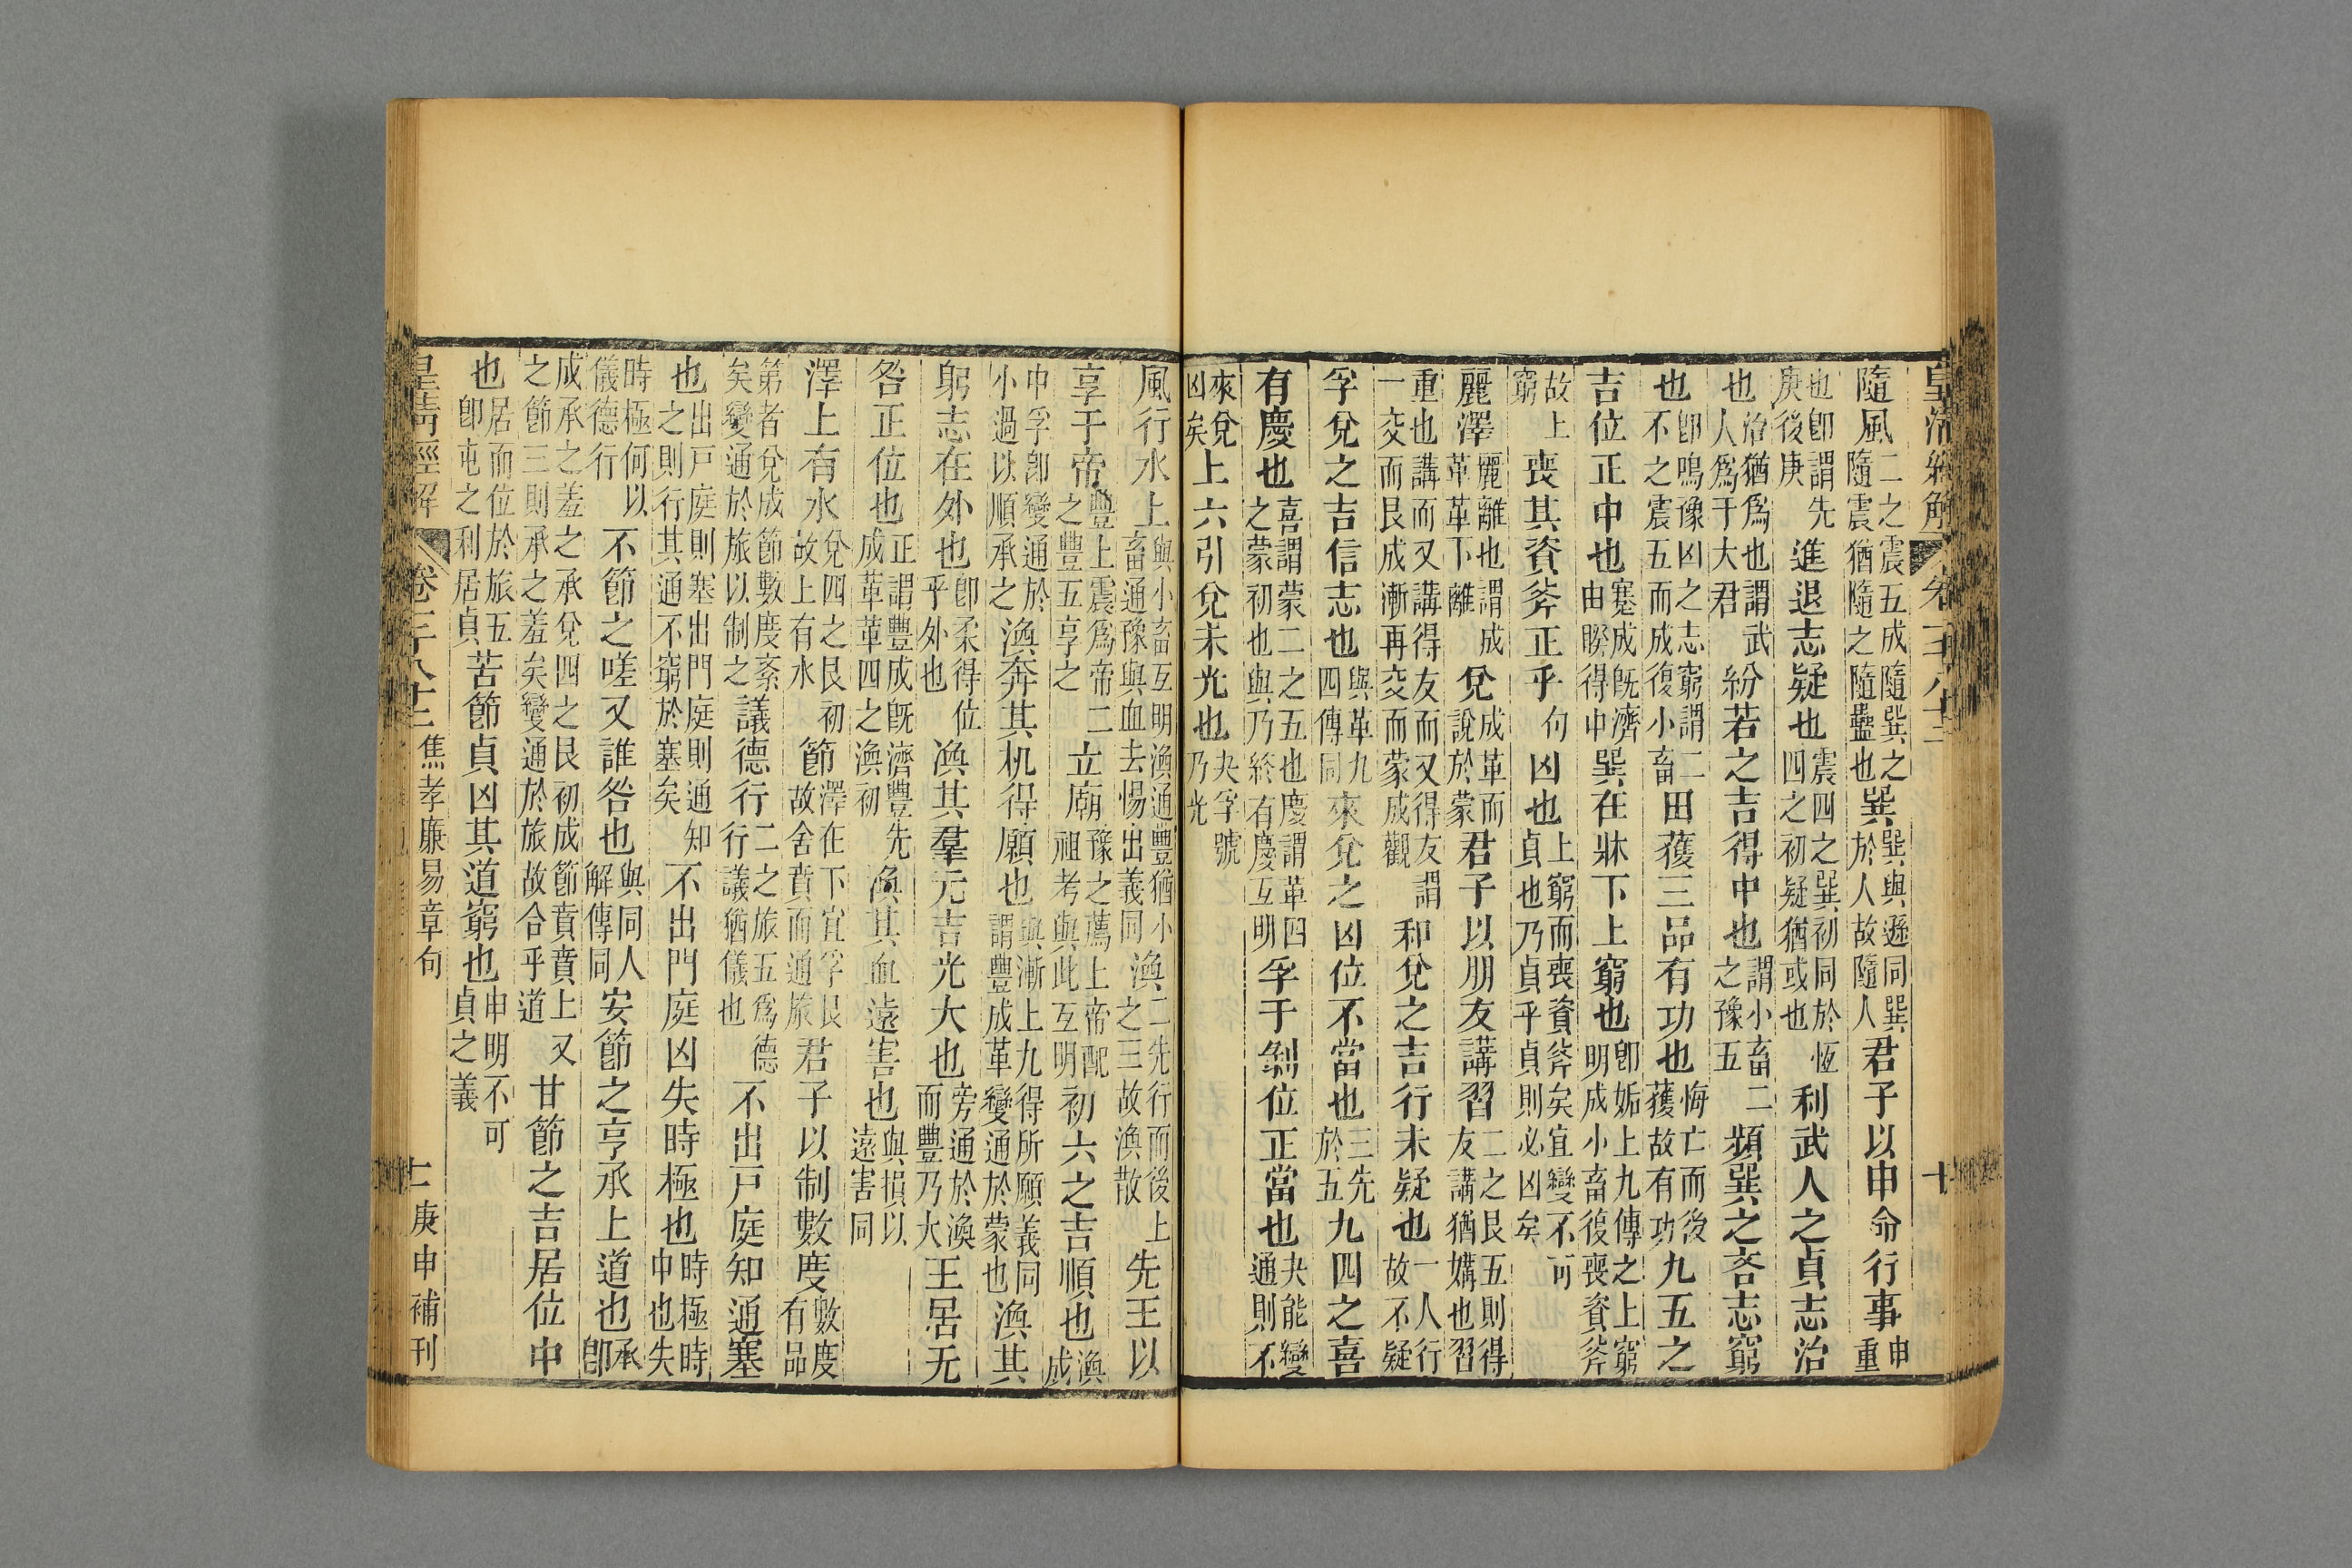 皇清經解 卷一千八十二 十
隨風二之震五成隨巽之隨震猶隨之隨蠱也巽巽與遜同巽於人故隨人君子以申命行事申重
也卽謂先庚後庚進退志疑也震四之巽初同於恆四之初疑猶或也利武人之貞志治
也治猶爲也謂武人爲于大君紛若之吉得中也謂小畜二之豫五頻巽之吝志窮
也卽鳴豫凶之志窮謂二不之震五而成復小畜田獲三品有功也悔亡而後獲故有功九五之
吉位正中也蹇成旣濟由睽得中巽在牀下上窮也卽姤上九傳之上窮明成小畜復喪資斧
故上窮喪其資斧正乎句凶也上窮而喪資斧矣宜變不可貞也乃貞乎貞則必凶矣
麗澤麗離也謂成革革下離兌成革而說於蒙君子以朋友講習二之艮五則得友講猶媾也習
重也講而又講得友而又得友謂一交而艮成漸再交而蒙成觀和兌之吉行未疑也一人行故不疑
孚兌之吉信志也與革九四傳同來兌之凶位不當也三先於五九四之喜
有慶也喜謂蒙二之五也慶謂革四之蒙初也與乃終有慶互明孚于剝位正當也夬能變通則不
來兌凶矣上六引兌未光也夬孚號乃光
風行水上與小畜互明渙通豐猶小畜通豫與血去惕出義同渙二先行而後上之三故渙散先王以
享于帝豐上震爲帝二之豐五享之立廟豫之薦上帝配祖考與此互明初六之吉順也渙成
中孚卽變通於小過以順承之渙奔其机得願也與漸上九得所願義同謂豐成革變通於蒙也渙其
躬志在外也卽柔得位乎外也渙其羣元吉光大也旁通於渙而豐乃大王居无
咎正位也正謂豐成旣濟豐先成革革四之渙初渙其血遠害也與損以遠害同
澤上有水兌四之艮初故上有水節澤在下宜孚艮故舍賁而通旅君子以制數度數度有品
第者兌成節數度紊矣變通於旅以制之議德行二之旅五爲德行議猶儀也不出戸庭知通塞
也出戸庭則塞出門庭則通知之則行其通不窮於塞矣不出門庭凶失時極也時極時中也失
時極何以儀德行不節之嗟又誰咎也與同人解傳同安節之亨承上道也承卽
成承之羞之承兌四之艮初成節賁賁上又之節三則承之羞矣變通於旅故合乎道甘節之吉居位中
也居而位於旅五卽屯之利居貞苦節貞凶其道窮也申明不可貞之義
皇清經解 卷一千八十二 焦孝廉易章句 十一 庚申補刊